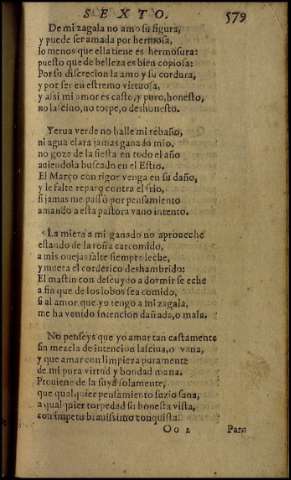 SEXTO. 579
De mi zagala no amo su figura,
y puede ser amada por hermosa,
lo menos que ella tiene es hermosura:
puesto que de belleza es bien copiosa:
Por su discrecion la amo y su cordura,
y por ser en estremo virtuosa,
y assi mi amor es casto, y puro, honesto,
no lascivo, no torpe, o deshonesto.
Yerua verde no halle mi rebaño,
ni agua clara jamas ganado mio,
no goze de la siesta en todo el año
auiendola buscado en el Estio.
El Março con rigor venga en su daño,
y le falte reparo contra el frio,
si jamas me passò por pensamiento
amando a esta pastora vano intento.
La miera a mi ganado no aproueche
estando de la roña carcomido,
a mis ouejas falte siempre leche,
y muera el corderico deshambrido:
El mastin con descuydo a dormir se eche
a fin que de los lobos sea comido,
si al amor que yo tengo a mi zagala,
me ha venido intencion dañada, o mala.
No penseys que yo amar tan castamente
sin mezcla de intencion lasciua, o vana,
y que amar con limpieza puramente
de mi pura virtud y bondad mana.
Prouiene de la suya solamente,
que qualquier pensamiento suzio sana,
a qualquier torpedad su honesta vista,
con impetu brauissimo conquista.
Oo 2 Para